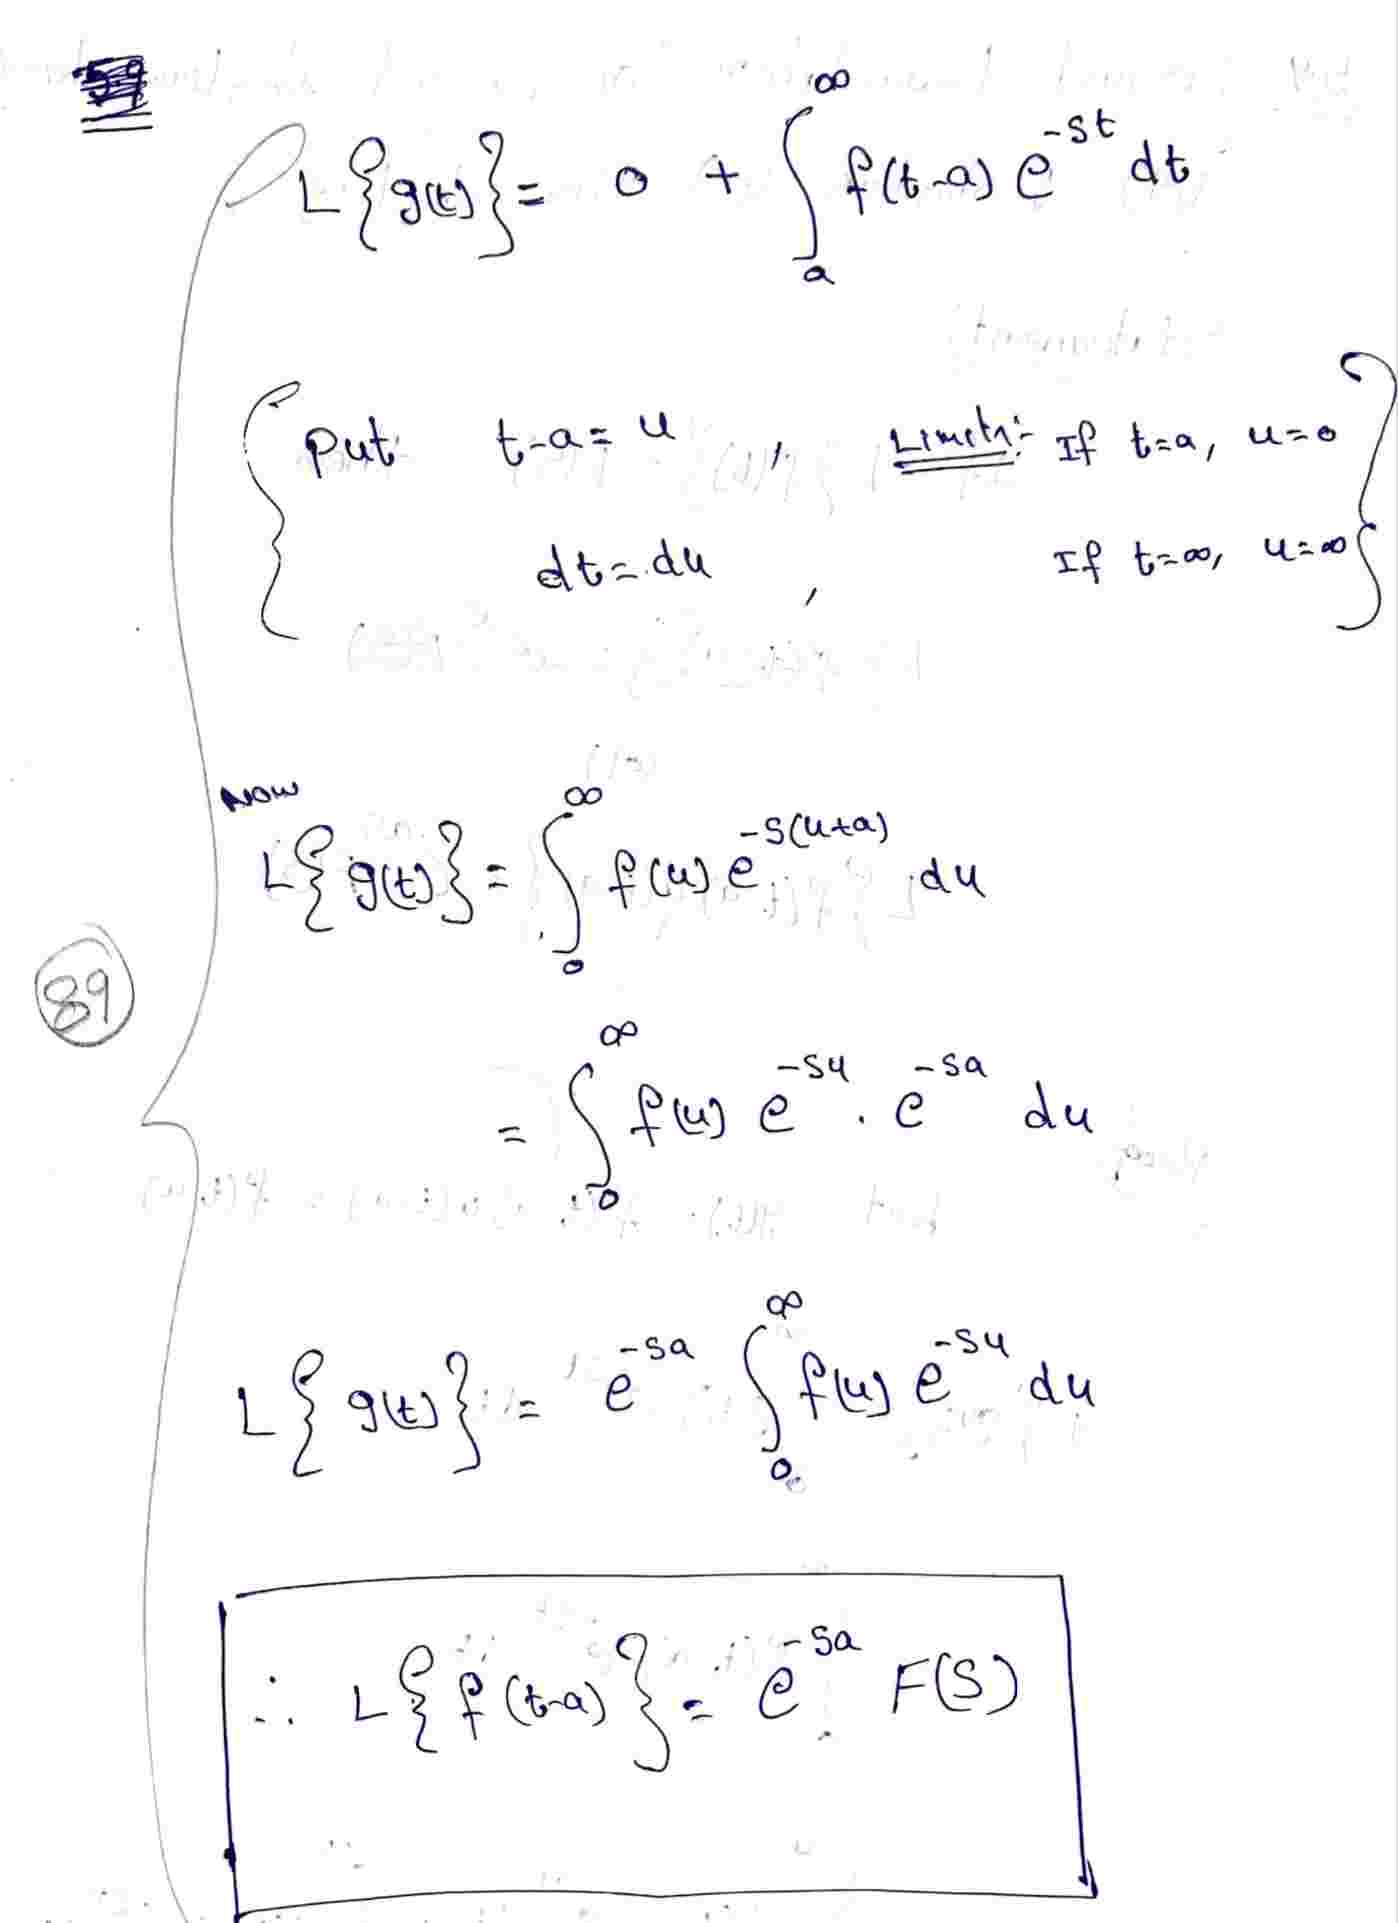 L{g(t)} = 0 + ∫_a^∞ f(t-a) e^{-st} dt
Put t-a = u , Limits:- If t=a, u=0
dt = du , If t=∞, u=∞
Now
L{g(t)} = ∫_0^∞ f(u) e^{-s(u+a)} du
= ∫_0^∞ f(u) e^{-su} . e^{-sa} du
89
L{g(t)} = e^{-sa} ∫_0^∞ f(u) e^{-su} du
∴ L{f(t-a)} = e^{-sa} F(S)